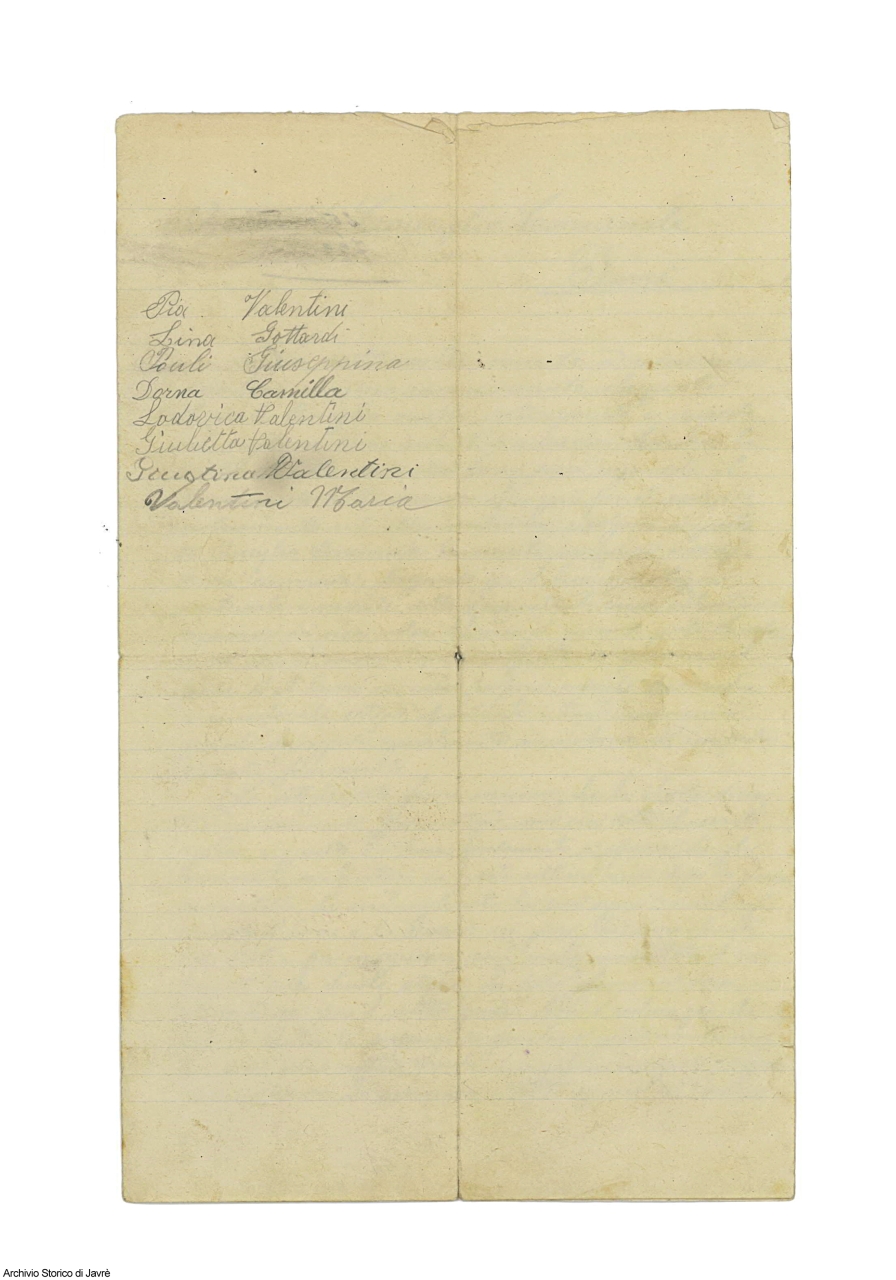 Pia Valentini
Lina Gottardi
Pauli Giuseppina
Dorna Camilla
Lodovica Valentini
Giulietta Valentini
Giustina Valentini
Valentini Maria
Archivio Storico di Javrè